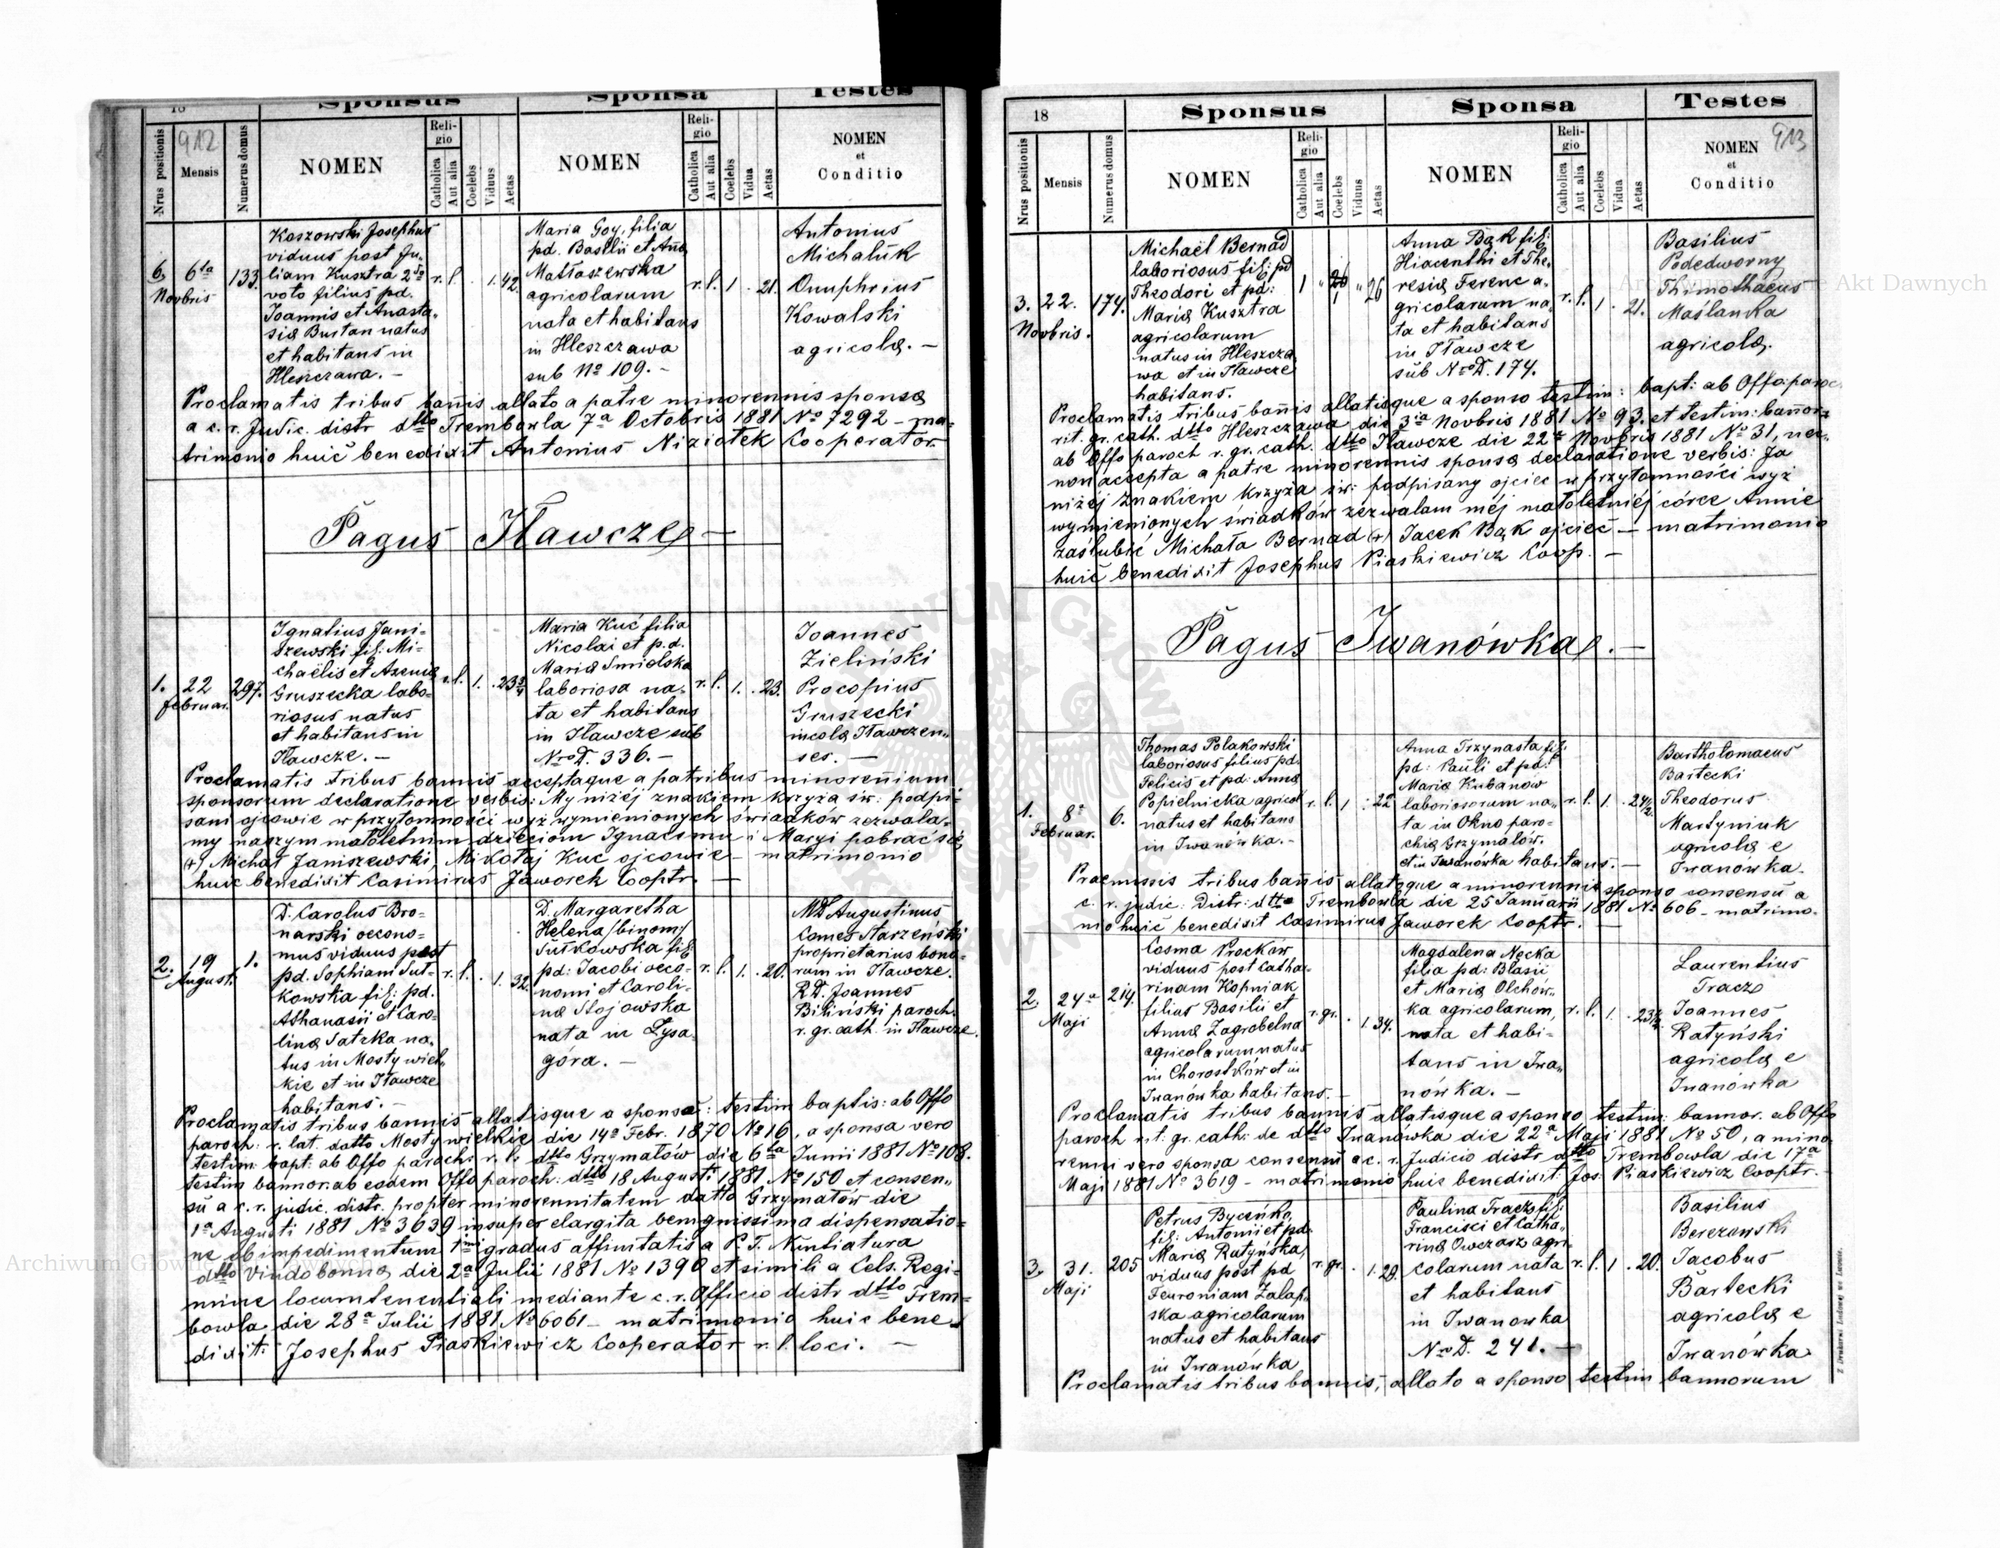 18
912
Sponsus
Sponsa
Testes
Nrus positionis
Mensis
Numerus domus
NOMEN
Religio
Catholica
Aut alia
Coelebs
Viduus
Aetas
NOMEN
Religio
Catholica
Aut alia
Coelebs
Vidua
Aetas
NOMEN
et
Conditio
6. 6ta Novbris
133.
Koszowski Josephus
viduus post Ju-
liam Kusztra 2do
voto filius pd.
Joannis et Anasta-
siæ Burtan natus
et habitans in
Hleszczawa. –
r. l. . 1. 42.
Maria Goy, filia
pd. Basilii et Annæ
Matłaszewska
agricolarum
nata et habitans
in Hleszczawa
sub No 109. –
r. l. 1 . 21.
Antonius
Michaluk
Onuphrius
Kowalski
agricolæ. –
Proclamatis tribus bannis allato a patre minorennis sponsæ
a c. r. Judic. distr dtto Trembowla 7a Octobris 1881 No 7292 – ma-
trimonio huic benedixit Antonius Niziołek Cooperator.
Pagus Iławcze –
1. 22 Februar.
297.
Ignatius Jani-
szewski fil: Mi-
chaëlis et Axeniæ
Gruszecka labo-
riosus natus
et habitans in
Iławcze. –
r. l. 1. . 23 3/4
Maria Kuć filia
Nicolai et p.d.
Mariæ Smielska
laboriosa na-
ta et habitans
in Iławcze sub
Nro D. 336. –
r. l. 1. . 23.
Joannes
Zieliński
Procopius
Gruszecki
incolæ Iławczen-
ses. –
Proclamatis tribus bannis acceptaque a patribus minorennium
sponsorum declaratione verbis: My niżéj znakiem krzyża św: podpi-
sani ojcowie w przytomności wyż wymienionych świadków zezwala-
my naszym małoletnim dzieciom Ignacemu i Maryi pobrać się
(+) Michał Janiszewski, Mikołaj Kuć ojcowie – matrimonio
huic benedixit Casimirus Jaworek Cooptr. –
2. 19 Augusti
1.
D. Carolus Bro-
narski oecono-
mus viduus post
pd. Sophiam Sut-
kowska fil: pd.
Athanasii et Caro-
linæ Satzka na-
tus in Mosty wiel-
kie et in Iławcze
habitans. –
r. l. . 1. 32.
D. Margaretha
Helena /binom:/
Sutkowska fil:
pd: Jacobi oeco-
nomi et Caroli-
næ Słojowska
nata in Łysa-
góra. –
r. l. 1. . 20.
MD Augustinus
Comes Starzeński
proprietarius bono-
rum in Iławcze.
RD. Joannes
Biliński paroch.
r. gr. cath. in Iławcze.
Proclamatis tribus bannis allatisque a sponso: testim baptis: ab Offo
paroch: r. lat. datto Mosty wielkie die 14a Febr. 1870 No 16, a sponsa vero
testim: bapt: ab Offo paroch: r. l. dtto Grzymałów die 6ta Junii 1881 No 108.
testim bannor. ab eodem Offo paroch: dtto 18 Augusti 1881 No 150 et consen-
sū a c. r. judic. distr. propter minorennitatem datto Grzymałów die
1a Augusti 1881 No 3639 insuper elargita benignissima dispensatio-
ne ob impedimentum 1mi gradus affinitatis a P. T. Nuntiatura
dtto Vindobonnæ die 2a Julii 1881 No 1390 et simili a Cels. Regi-
mine locumtenentiali mediante c. r. Officio distr dtto Trem-
bowla die 28a Julii 1881 No 6061 – matrimonio huic bene-
dixit: Josephus Piaskiewicz Cooperator r. l. loci. –
18
913
Sponsus
Sponsa
Testes
Nrus positionis
Mensis
Numerus domus
NOMEN
Religio
Catholica
Aut alia
Coelebs
Viduus
Aetas
NOMEN
Religio
Catholica
Aut alia
Coelebs
Vidua
Aetas
NOMEN
et
Conditio
3. 22. Novbris.
174.
Michaël Bernad
laboriosus fil: pd
Theodori et pd:
Mariæ Kusztra
agricolarum
natus in Hleszcza-
wa et in Iławcze
habitans.
26
Anna Bąk fil:
Hiacenthi et The-
resiæ Ferenc a-
gricolarum na-
ta et habitans
in Iławcze
sub Nro D. 174.
r. l. 1 . 21.
Basilius
Podedworny
Thimothaeus
Maślanka
agricolæ.
Proclamatis tribus bannis allatisque a sponso testim: bapt: ab Offo paroc
rit. gr. cath. dtto Hleszczawa die 3ia Novbris 1881 No 93. et testim: bannor:
ab Offo paroch r. gr. cath. dtto Iławcze die 22a Novbris 1881 No 31, nec-
non accepta a patre minorennis sponsæ declaratione verbis: Ja
niżéj znakiem krzyża św: podpisany ojciec w przytomności wyż
wymienionych świadków zezwalam méj małoletniéj córce Annie
zaślubić Michała Bernad (+) Jacek Bąk ojciec – matrimonio
huic benedixit Josephus Piaskiewicz Coop. –
Pagus Iwanówka. –
1. 8a Februar.
6.
Thomas Polakowski
laboriosus filius pd.
Felicis et pd: Annæ
Popielnicka agricol
natus et habitans
in Iwanówka. –
r. l. 1 . 22
Anna Trzynasta fil:
pd: Pauli et pd:
Mariæ Kubanów
laboriosorum na-
ta in Okno paro-
chiæ Grzymałów.
et in Iwanówka habitans. –
r. l. 1. . 24 1/2
Bartholomaeus
Bartecki
Theodorus
Martyniuk
agricolæ e
Iwanówka.
Praemissis tribus bannis allatoque a minorennis sponso consensū a
c. r. judic. Distr: dtto Trembowla die 25 Januarii 1881 No 606 – matrimo-
nio huic benedixit Casimirus Jaworek Cooptr. –
2. 24a Maji
214.
Cosma Proćków
viduus post Catha-
rinam Kopniak
filius Basilii et
Annæ Zagrobelna
agricolarum natus
in Chorostków et in
Iwanówka habitans. –
r. gr. . 1. 34.
Magdalena Nęcka
filia pd: Blasii
et Mariæ Olchów-
ka agricolarum,
nata et habi-
tans in Iwa-
nówka. –
r. l. 1. . 23
Laurentius
Tracz
Joannes
Ratyński
agricolæ e
Iwanówka
Proclamatis tribus bannis allatisque a sponso testim: bannor. ab Offo
paroch rit. gr. cath: de dtto Iwanówka die 22a Maji 1881 No 50, a mino-
renni vero sponsa consensū a c. r. Judicio distr dtto Trembowla die 17a
Maji 1881 No 3619 – matrimonio huic benedixit: Jos. Piaskiewicz Cooptr. –
3. 31. Maji
205
Petrus Byceńko,
fil: Antonii et pd.
Mariæ Ratyńska,
viduus post pd
Feuroniam Załap-
ska agricolarum
natus et habitans
in Iwanówka
r. gr. . 1. 29.
Paulina Tracz fil:
Francisci et Catha-
rinæ Owczarz agri-
colarum nata
et habitans
in Iwanowka
Nro D. 241. –
r. l. 1 . 20.
Basilius
Berezowski
Jacobus
Bartecki
agricolæ e
Iwanówka
Proclamatis tribus bannis, allato a sponso testim bannorum
Z Drukarni Ludowej we Lwowie.
Archiwum Główne Akt Dawnych
Archiwum Główne Akt Dawnych
ARCHIWUM GŁÓWNE AKT DAWNYCH